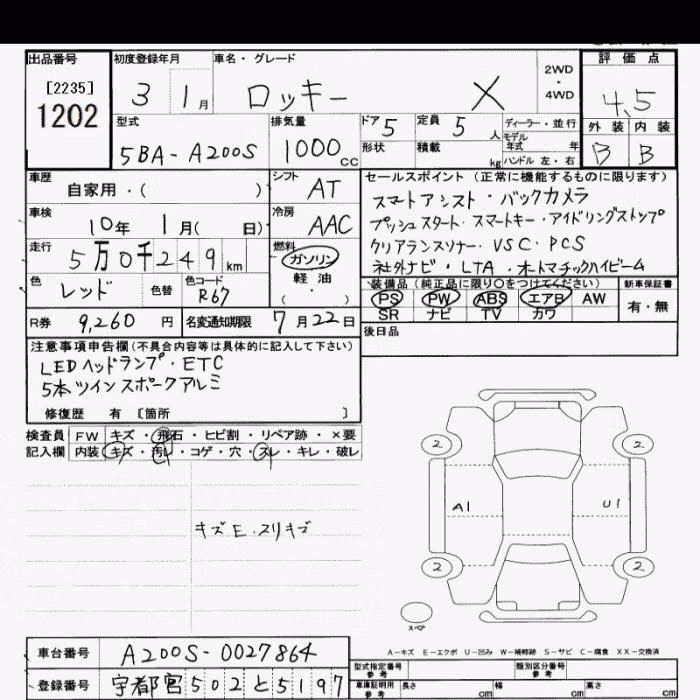 出品番号 初度登録年月 車名・グレード 2WD・4WD 評価点
[2235]
1202
3 1月 ロッキー X 4.5
外装 内装
B B
型式 排気量 ドア 5 定員 5人 ディーラー・並行
モデル年式 年
5BA-A200S 1000cc 形状 積載 kg ハンドル 左・右
車歴 自家用・( ) シフト AT
セールスポイント (正常に機能するものに限ります)
スマートアシスト・バックカメラ
プッシュスタート・スマートキー・アイドリングストップ
クリアランスソナー・VSC・PCS
社外ナビ・LTA・オートマチックハイビーム
車検 10年 1月( 日) 冷房 AAC
走行 5万0千249km 燃料 ガソリン
軽油
( )
色 レッド 色替 色コード R67
装備品 (純正品に限り○をつけてください) 新車保証書
PS PW ABS エアB AW 有・無
SR ナビ TV カワ
R券 9,260円 名変通知期限 7月22日
後日品
注意事項申告欄(不具合内容等は具体的に記入して下さい)
LEDヘッドランプ・ETC
5本ツインスポークアルミ
修復歴 有 [箇所 ]
検査員 FW キズ・飛石・ヒビ割・リペア跡・×要
記入欄 内装 キズ・汚レ・コゲ・穴・スレ・キレ・破レ
キズE・スリキズ
2 2
A1 U1
2 2
スペア
A-キズ E-エクボ U-凹み W-補修跡 S-サビ C-腐食 XX-交換済
車台番号 A200S-0027864
型式指定番号 参考 類別区分番号 参考
登録番号 宇都宮502と5197
車庫証明用 参考 長さ cm 幅 cm 高さ cm